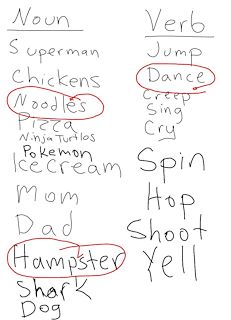 Noun
Superman
Chickens
Noodles
Pizza
Ninja Turtlos
Pokemon
Ice Cream
Mom
Dad
Hampster
Shark
Dog
Verb
Jump
Dance
Creep
Sing
Cry
Spin
Hop
Shoot
Yell